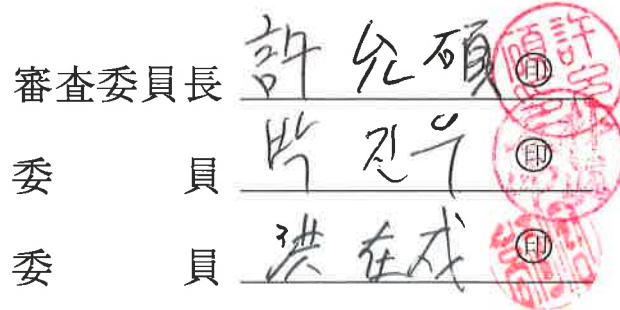 審査委員長 許允碩 ㊞
委 員 박진우 ㊞
委 員 洪在成 ㊞